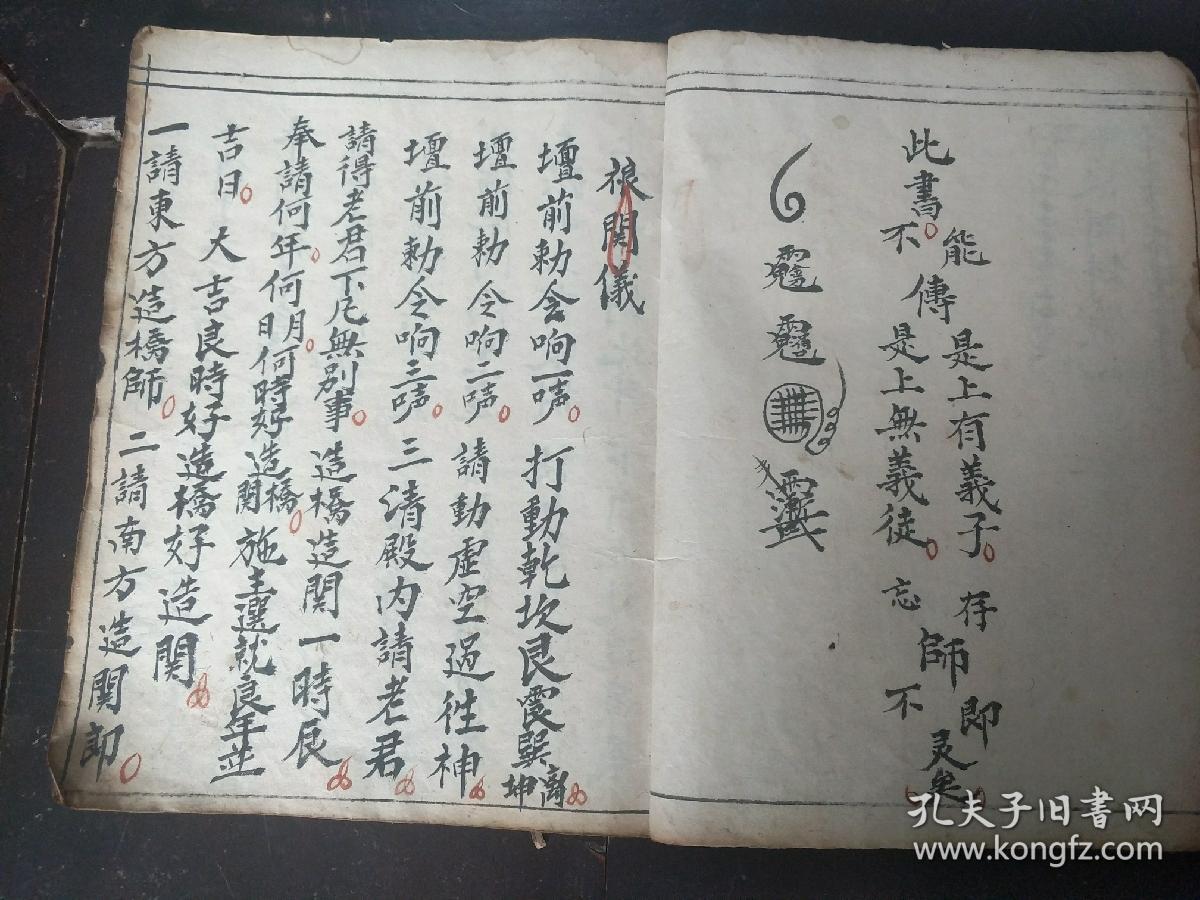 此書能傳是上有義子存師即灵矣
不是上無義徒忘不
関儀
壇前勅令响一声打動乾坎艮震巽離坤
壇前勅令响二声請動虛空過徃神
壇前勅令响三声三清殿内請老君
請得老君下凡無別事造橋造関一時辰
奉請何年何月何日何時好造橋造関施主選就良年並
吉日大吉良時好造橋好造関
一請東方造橋師二請南方造関郎
孔夫子旧书网
www.kongfz.com